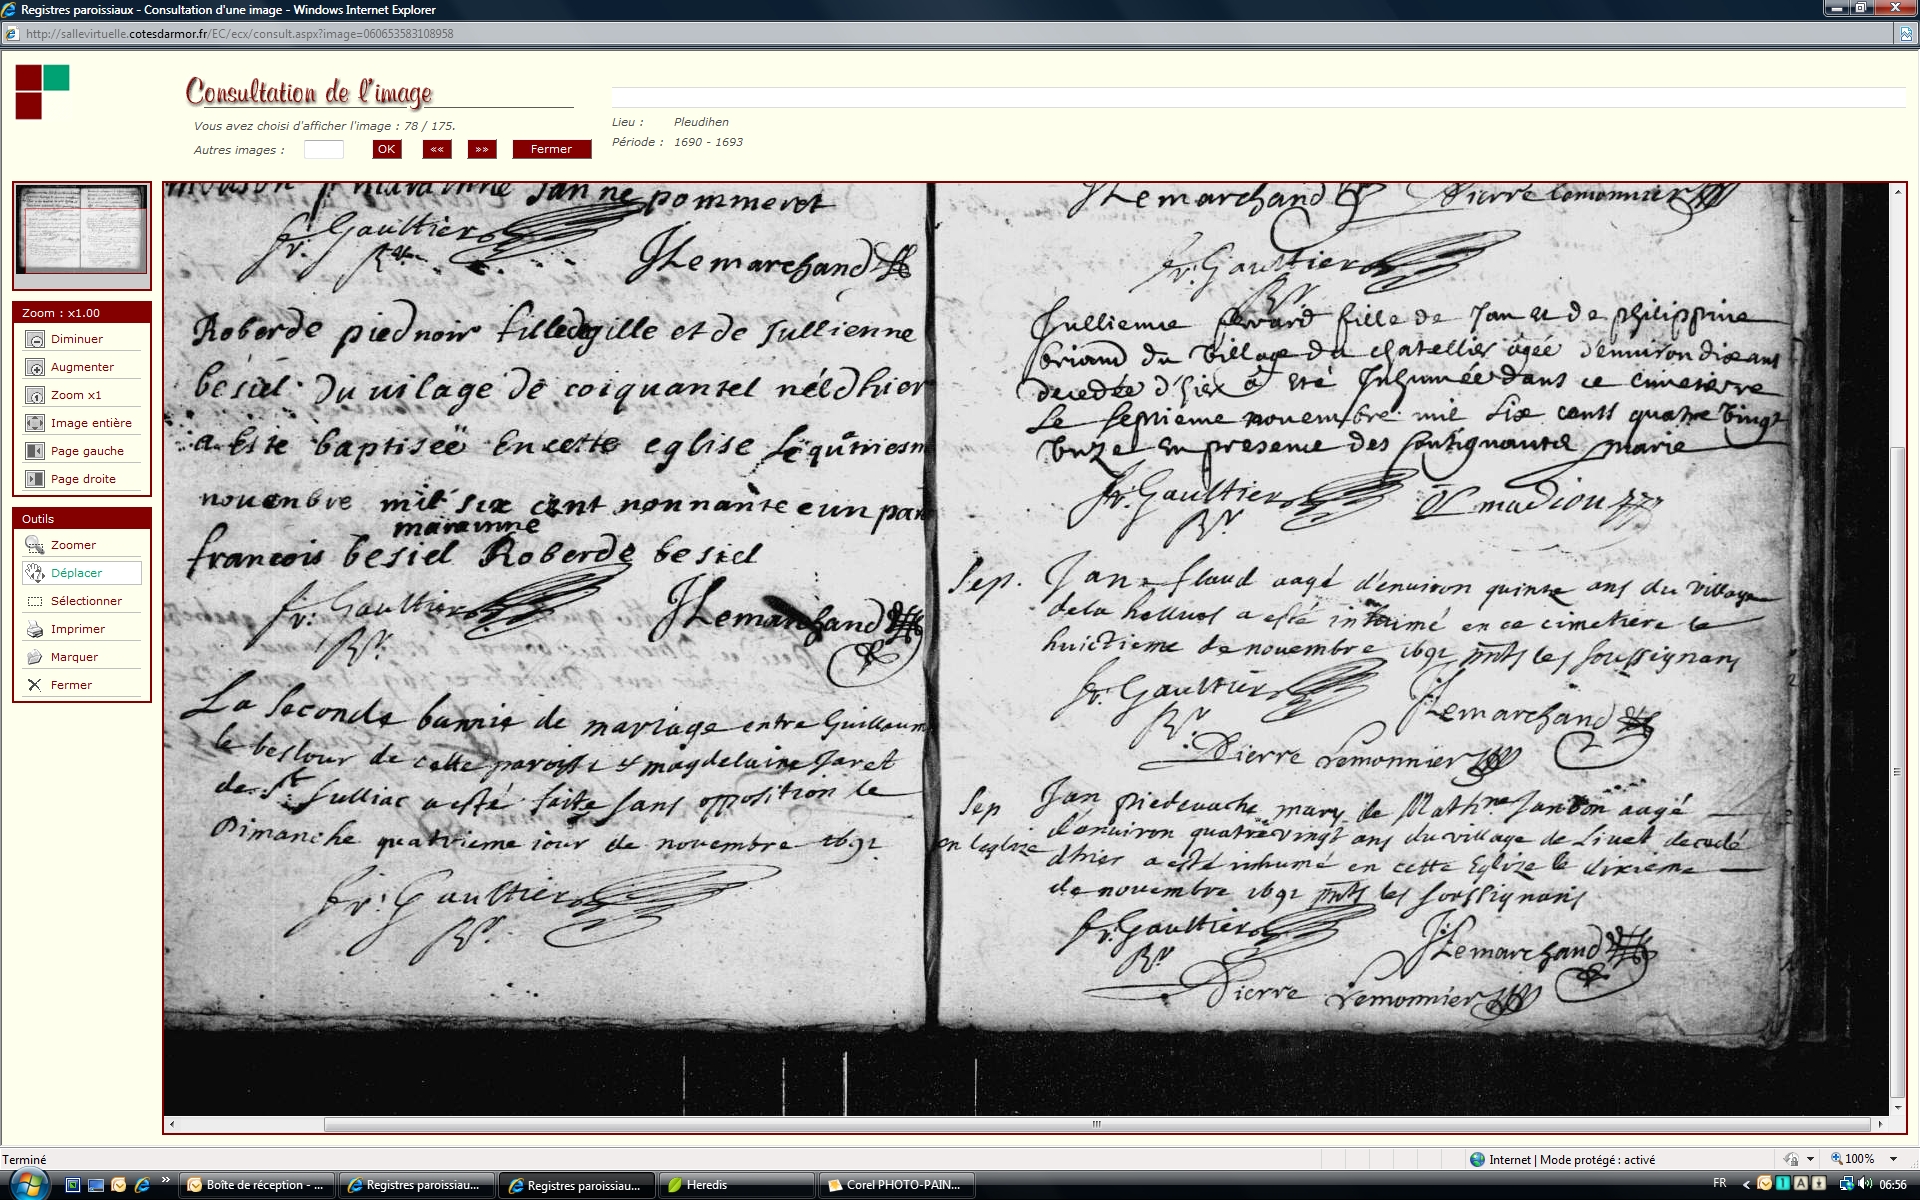 Registres paroissiaux - Consultation d'une image - Windows Internet Explorer
http://sallevirtuelle.cotesdarmor.fr/EC/ecx/consult.aspx?image=060653583108958
Consultation de l'image
Vous avez choisi d'afficher l'image : 78 / 175.
Autres images :
OK
««
»»
Fermer
Lieu : Pleudihen
Période : 1690 - 1693
Zoom : x1.00
Diminuer
Augmenter
Zoom x1
Image entière
Page gauche
Page droite
Outils
Zoomer
Déplacer
Sélectionner
Imprimer
Marquer
Fermer
Janne pommeret
fr: Gaultier
JLemarchand
Roberde piednoir fille de gille et de Jullienne
besiel du vilage de coiquantel né d'hier
a este baptiseë En cette eglise
novenbre mil six cent nonnante e un
maramne
francois besiel Roberde besiel
fr: Gaultier
JLemarchand
La seconde bannie de mariage entre Guillaum
le beslour de cette paroisse & magdelaine Jaret
de St Sulliac a esté faite sans opposition le
Dimanche quatrieme iour de novembre 1691
fr: Gaultier
JLemarchand Pierre Lemonnier
fr: Gaultier
Jullienne fille de Jan et de philippine
briand du village du chatellier agée d'environ dix ans
decedée d'hier a eté Inhumée dans ce cimetierre
Le septieme novembre mil six cents quatre vingt
unze En presense des soutignants marie
fr: Gaultier
Sep. Jan flaud aagé d'environ quinze ans du village
de la a esté inhumé en ce cimetiere le
huictieme de novembre 1691 pnts les soussignans
fr: Gaultier JLemarchand
Pierre Lemonnier
Sep Jan piedevache mary de Math:ne aagé
d'environ quatre vingt ans du village de Livet decedé
en l'eglize dhier a esté inhumé en cette Eglize le dixieme
de novembre 1691 pnts les soussignans
fr: Gaultier JLemarchand
Pierre Lemonnier
Terminé
Internet | Mode protégé : activé
100%
Boîte de réception - ...
Registres paroissiau...
Registres paroissiau...
Heredis
Corel PHOTO-PAIN...
FR
06:56